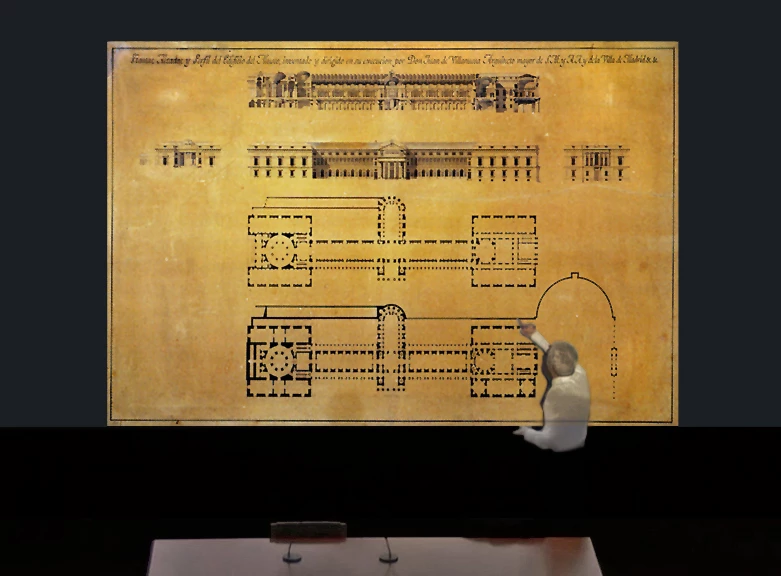 Plantas, Fachadas y Perfil del Edificio del Museo, inventado y dirigido en su execucion por Don Juan de Villanueva Arquitecto mayor de S.M. y A.A. y de la Villa de Madrid &c. &c.